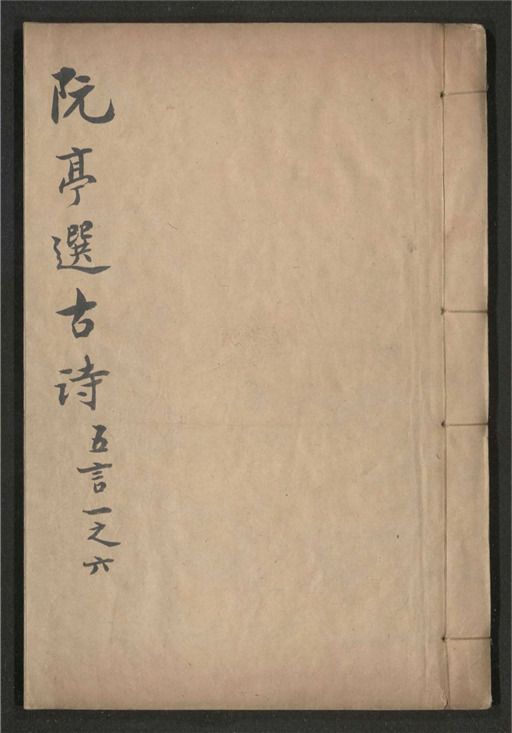 阮亭選古诗五言一之六